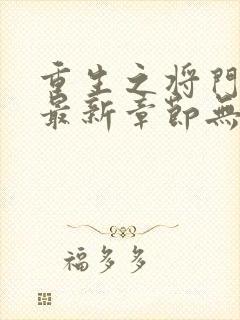 重生之将门
最新章節無
福多多